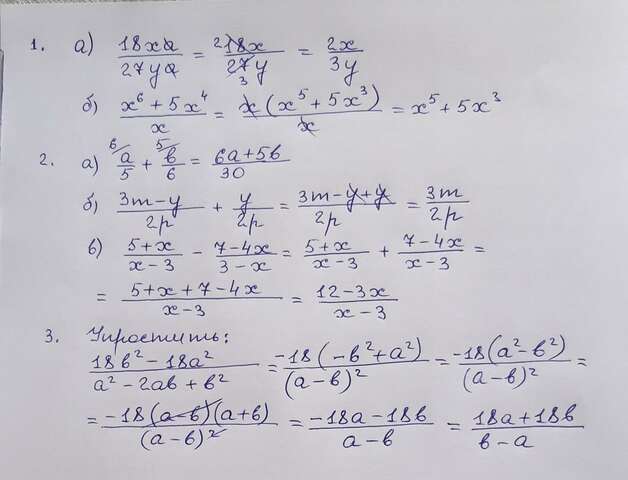 1. а) 18xa/27ya = 2 18x/27y 3 = 2x/3y
б) (x⁶ + 5x⁴)/x = x(x⁵ + 5x³)/x = x⁵ + 5x³
2. а) 6 a/5 + 5 в/6 = (6a + 5в)/30
б) (3m - y)/2p + y/2p = (3m - y + y)/2p = 3m/2p
в) (5 + x)/(x - 3) - (7 - 4x)/(3 - x) = (5 + x)/(x - 3) + (7 - 4x)/(x - 3) =
= (5 + x + 7 - 4x)/(x - 3) = (12 - 3x)/(x - 3)
3. Упростить:
(18в² - 18a²)/(a² - 2aв + в²) = -18(-в² + a²)/(a - в)² = -18(a² - в²)/(a - в)² =
= -18(a - в)(a + в)/(a - в)² = (-18a - 18в)/(a - в) = (18a + 18в)/(в - a)